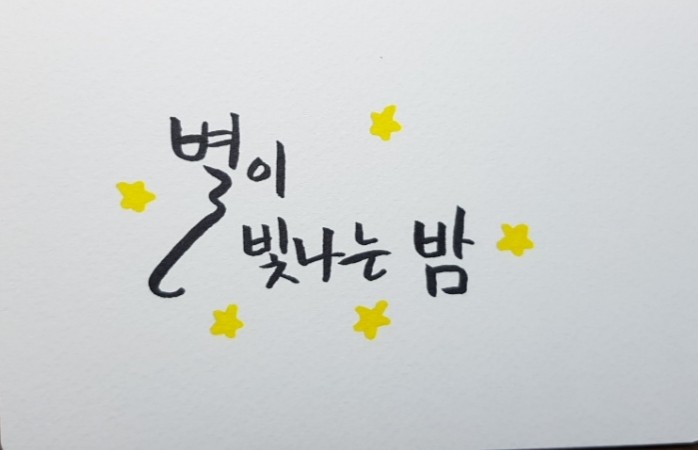 별이
빛나는 밤